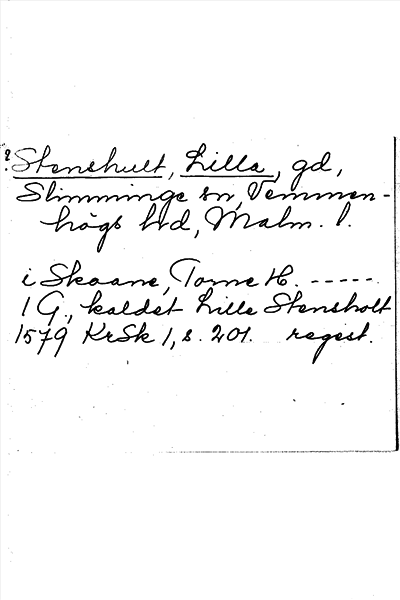 ? Stenshult, Lilla, gd,
Slimminge sn, Vemmen-
högs hd, Malm. l.
i Skaane, Torne H. -----
1 G., kaldet Lille Stensholt
1579 KrSk 1, s. 201. regest.